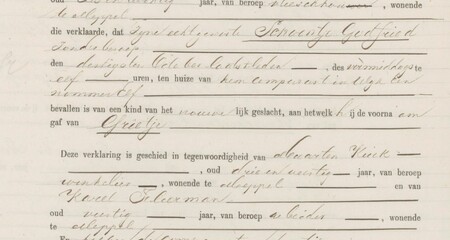 oud jaar, van beroep vleeschhouwer, wonende
te Meppel
die verklaarde, dat zijne echtgenoote Schoontje Godfried
zonder beroep
den dertigsten October laatstleden, des voormiddags te
elf uren, ten huize van hem comparant in wijk een
nommer elf
bevallen is van een kind van het vrouwe lijk geslacht, aan hetwelk hij de voorna am
gaf van Grietje
Deze verklaring is geschied in tegenwoordigheid van Maarten Kiek
, oud drie en veertig jaar, van beroep
winkelier, wonende te Meppel en van
Karel
oud veertig jaar, van beroep arbeider, wonende
te Meppel